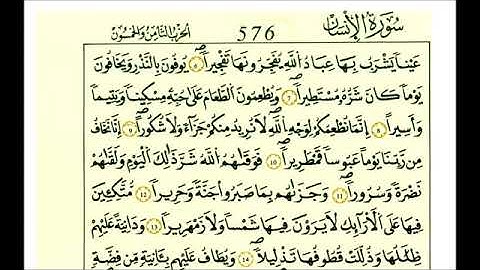 سُورَةُ الْإِنسَانِ 576 الحِزْبُ الثَّامِنُ وَالْخَمْسُونَ
عَيْناً يَشْرَبُ بِهَا عِبَادُ اللَّهِ يُفَجِّرُونَهَا تَفْجِيراً ٦ يُوفُونَ بِالنَّذْرِ وَيَخَافُونَ
يَوْماً كَانَ شَرُّهُ مُسْتَطِيراً ٧ وَيُطْعِمُونَ الطَّعَامَ عَلَىٰ حُبِّهِ مِسْكِيناً وَيَتِيماً
وَأَسِيراً ٨ إِنَّمَا نُطْعِمُكُمْ لِوَجْهِ اللَّهِ لَا نُرِيدُ مِنكُمْ جَزَآءً وَلَا شُكُوراً ٩ إِنَّا نَخَافُ
مِن رَّبِّنَا يَوْماً عَبُوساً قَمْطَرِيراً ١٠ فَوَقَىٰهُمُ اللَّهُ شَرَّ ذَٰلِكَ الْيَوْمِ وَلَقَّىٰهُمْ
نَضْرَةً وَسُرُوراً ١١ وَجَزَىٰهُم بِمَا صَبَرُوا جَنَّةً وَحَرِيراً ١٢ مُتَّكِـِٔينَ
فِيهَا عَلَى الْأَرَآئِكِ لَا يَرَوْنَ فِيهَا شَمْساً وَلَا زَمْهَرِيراً ١٣ وَدَانِيَةً عَلَيْهِمْ
ظِلَٰلُهَا وَذُلِّلَتْ قُطُوفُهَا تَذْلِيلاً ١٤ وَيُطَافُ عَلَيْهِم بِـَٔانِيَةٍ مِّن فِضَّةٍ